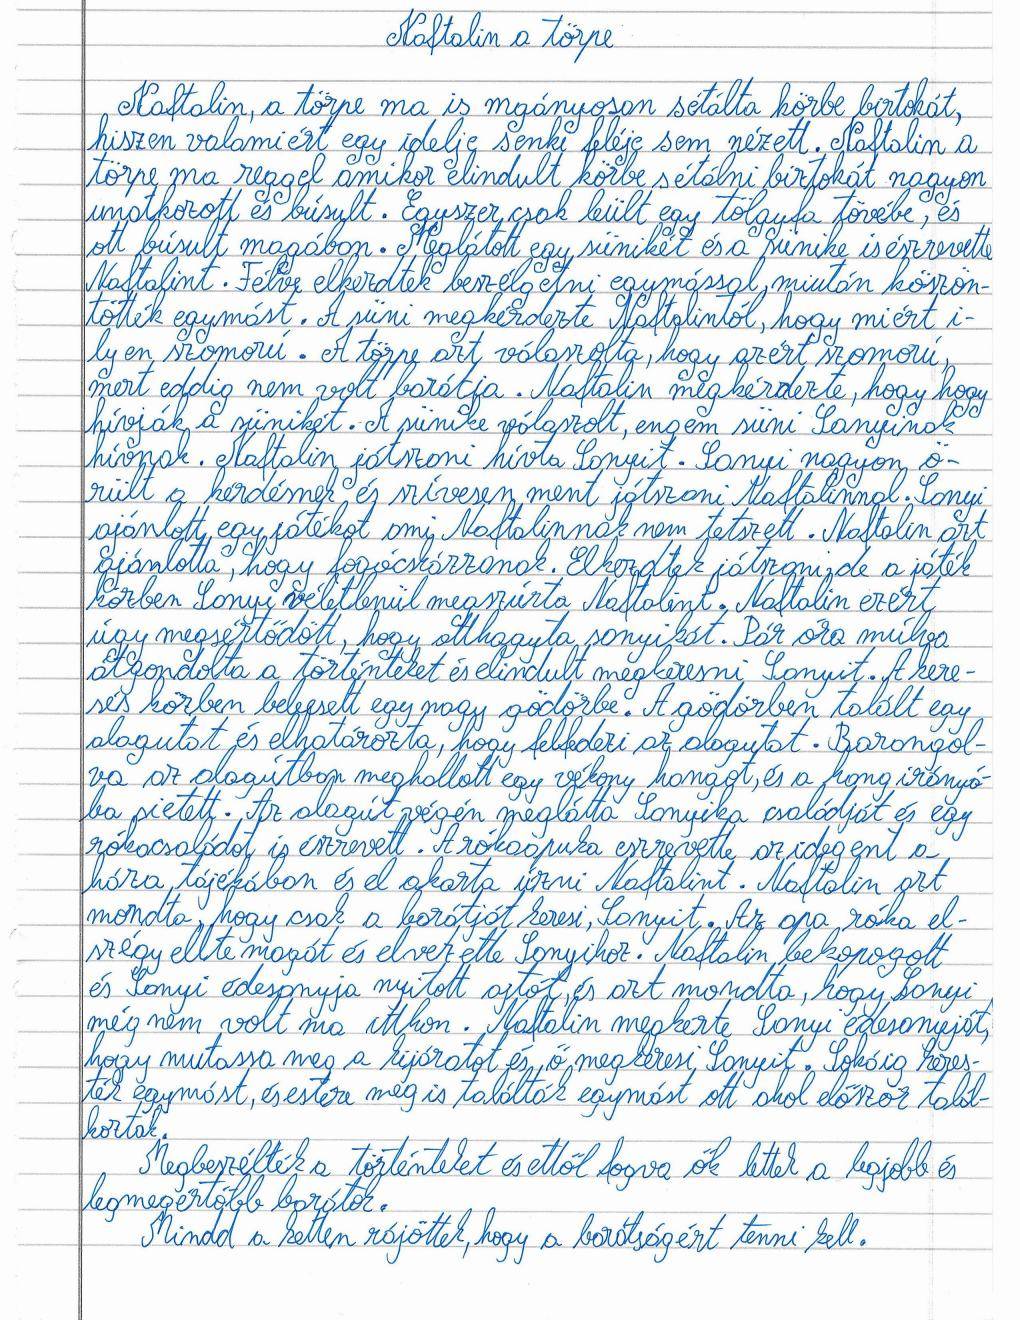 Naftalin a törpe
Naftalin, a törpe ma is mgányosan sétálta körbe birtokát,
hiszen valamiért egy idelje senki feléje sem nézett. Naftalin a
törpe ma reggel amikor elindult körbe sétálni birtokát nagyon
unatkozott és búsult. Egyszer csak leült egy tölgyfa tövébe, és
ott búsult magában. Meglátott egy sünikét és a sünike is észrevette
Naftalint. Félve elkezdtek beszélgetni egymással, miután köszön-
tötték egymást. A süni megkérdezte Naftalintól, hogy miért i-
lyen szomorú. A törpe azt válaszolta, hogy azért szomorú,
mert eddig nem volt barátja. Naftalin megkérdezte, hogy hogy
hívják a sünikét. A sünike válaszolt, engem süni Sanyinak
hívnak. Naftalin játszani hívta Sanyit. Sanyi nagyon ö-
rült a kérdésnek és szívesen ment játszani Naftalinnal. Sanyi
ajánlott egy játékot ami Naftalinnak nem tetszett. Naftalin azt
ajánlotta, hogy fogócskázzanak. Elkezdtek játszani, de a játék
közben Sanyi véletlenül megszúrta Naftalint. Naftalin ezért
úgy megsértődött, hogy otthagyta sanyikát. Pár óra múlva
átgondolta a történteket és elindult megkeresni Sanyit. A kere-
sés közben beleesett egy nagy gödörbe. A gödörben talált egy
alagutat és elhatározta, hogy felfedezi az alagutat. Barangol-
va az alagútban meghallott egy vékony hangot, és a hang irányá-
ba sietett. Az alagút végén meglátta Sanyika családját és egy
rókacsaládot is észrevett. A rókaapuka eszrevette az idegent a
háza tájékában és el akarta űzni Naftalint. Naftalin azt
mondta, hogy csak a barátját keresi, Sanyit. Az apa róka el-
szégyellte magát és elvezette Sanyihoz. Naftalin bekopogott
és Sanyi édesanyja nyitott ajtót, és azt mondta, hogy Sanyi
még nem volt ma itthon. Naftalin megkérte Sanyi édesanyját,
hogy mutassa meg a kijáratot és ő megkeresi Sanyit. Sokáig keres-
ték egymást, és estére még is találták egymást ott ahol először talál-
koztak.
Megbeszélték a történteket és ettől fogva ők lettek a legjobb és
legmegértőbb barátok.
Mindd a ketten rájöttek, hogy a barátságért tenni kell.